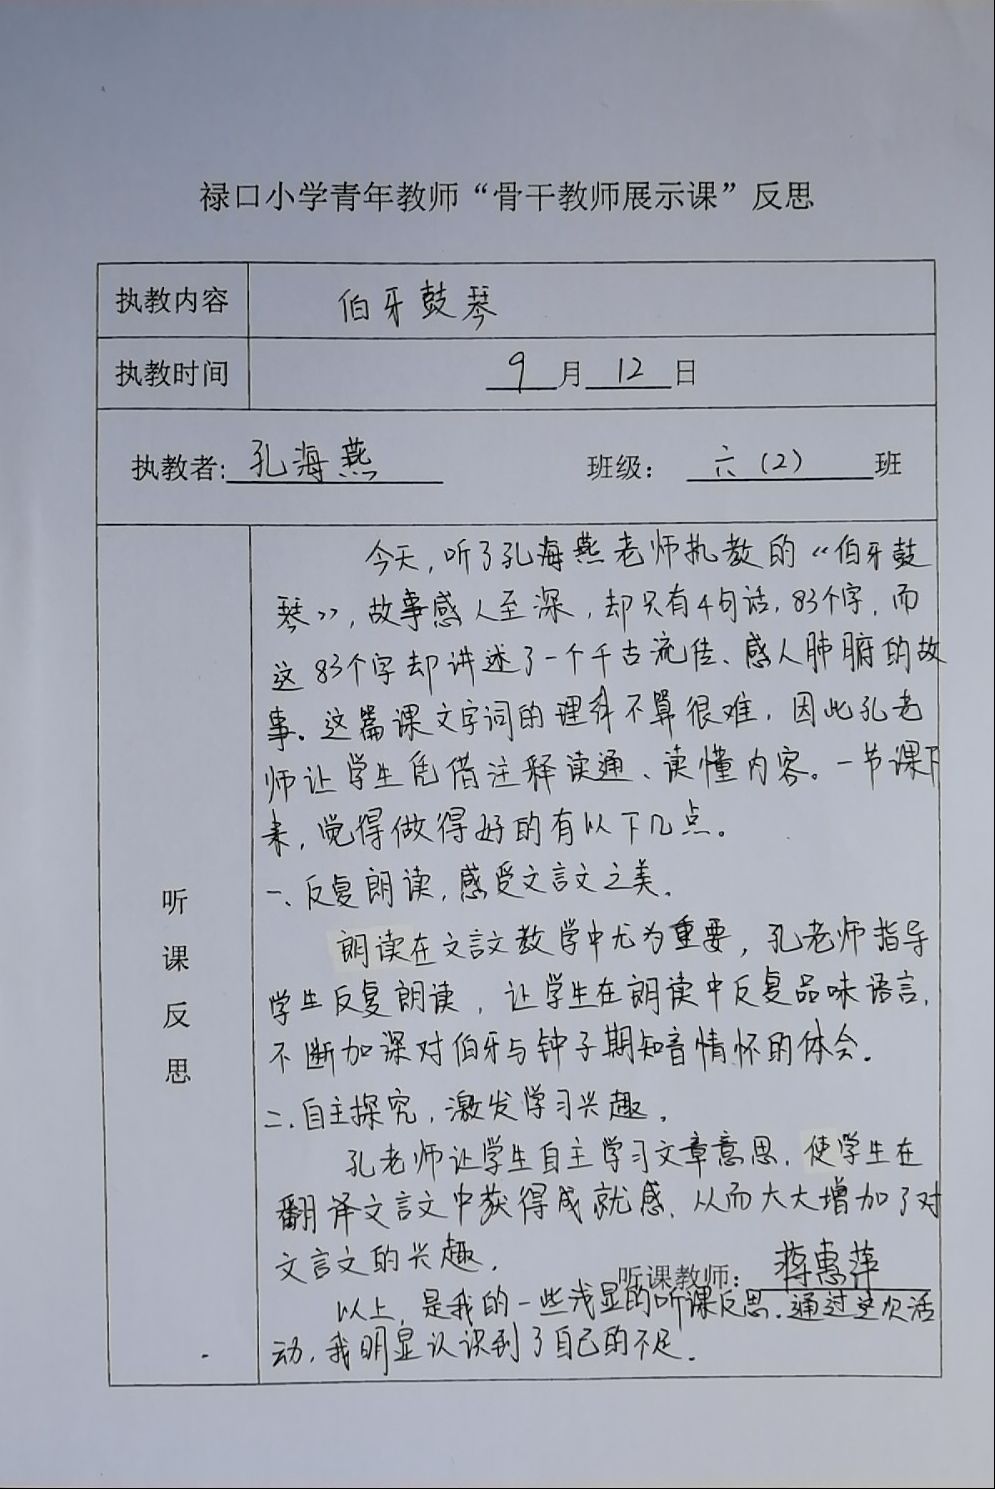 禄口小学青年教师“骨干教师展示课”反思
执教内容 伯牙鼓琴
执教时间 9月12日
执教者:孔海燕 班级：六(2)班
听课反思
今天，听了孔海燕老师执教的“伯牙鼓
琴”，故事感人至深，却只有4句话，83个字，而
这83个字却讲述了一个千古流传、感人肺腑的故
事。这篇课文字词的理科不算很难，因此孔老
师让学生凭借注释读通、读懂内容。一节课下
来，觉得做得好的有以下几点。
一、反复朗读，感受文言文之美。
朗读在文言文教学中尤为重要，孔老师指导
学生反复朗读，让学生在朗读中反复品味语言，
不断加深对伯牙与钟子期知音情怀的体会。
二、自主探究，激发学习兴趣。
孔老师让学生自主学习文章意思，使学生在
翻译文言文中获得成就感，从而大大增加了对
文言文的兴趣。
听课教师：蒋惠萍
以上，是我的一些浅显的听课反思，通过这次活
动，我明显认识到了自己的不足。